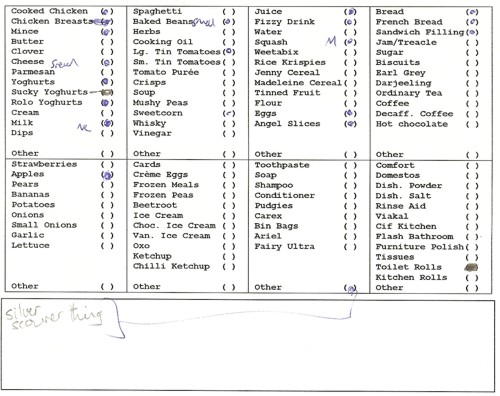 Cooked Chicken ( ) Spaghetti ( ) Juice ( ) Bread ( )
Chicken Breasts ( ) Baked Beans small ( ) Fizzy Drink ( ) French Bread ( )
Mince ( ) Herbs ( ) Water ( ) Sandwich Filling ( )
Butter ( ) Cooking Oil ( ) Squash M ( ) Jam/Treacle ( )
Clover ( ) Lg. Tin Tomatoes ( ) Weetabix ( ) Sugar ( )
Cheese ( ) Sm. Tin Tomatoes ( ) Rice Krispies ( ) Biscuits ( )
Parmesan ( ) Tomato Purée ( ) Jenny Cereal ( ) Earl Grey ( )
Yoghurts ( ) Crisps ( ) Madeleine Cereal ( ) Darjeeling ( )
Sucky Yoghurts ( ) Soup ( ) Tinned Fruit ( ) Ordinary Tea ( )
Rolo Yoghurts ( ) Mushy Peas ( ) Flour ( ) Coffee ( )
Cream ( ) Sweetcorn ( ) Eggs ( ) Decaff. Coffee ( )
Milk ( ) Whisky ( ) Angel Slices ( ) Hot chocolate ( )
Dips ( ) Vinegar ( )
Other ( ) Other ( ) Other ( ) Other ( )
Strawberries ( ) Cards ( ) Toothpaste ( ) Comfort ( )
Apples ( ) Crème Eggs ( ) Soap ( ) Domestos ( )
Pears ( ) Frozen Meals ( ) Shampoo ( ) Dish. Powder ( )
Bananas ( ) Frozen Peas ( ) Conditioner ( ) Dish. Salt ( )
Potatoes ( ) Beetroot ( ) Pudgies ( ) Rinse Aid ( )
Onions ( ) Ice Cream ( ) Carex ( ) Viakal ( )
Small Onions ( ) Choc. Ice Cream ( ) Bin Bags ( ) Cif Kitchen ( )
Garlic ( ) Van. Ice Cream ( ) Ariel ( ) Flash Bathroom ( )
Lettuce ( ) Oxo ( ) Fairy Ultra ( ) Furniture Polish ( )
Ketchup ( ) Tissues ( )
Chilli Ketchup ( ) Toilet Rolls ( )
Kitchen Rolls ( )
Other ( ) Other ( ) Other ( ) Other ( )
silver
scourer thing